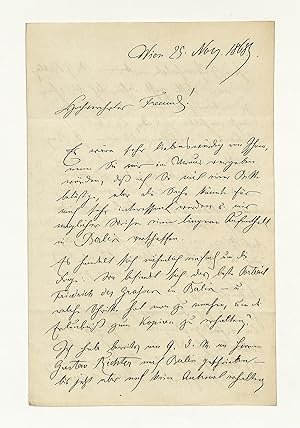 Wien 25. Nov 1868
Hochverehrter Freund!
Es wäre sehr liebenswürdig von Ihnen,
wenn Sie mir in
werden, daß ich Sie mit einer Bitte
belästige, aber die Sache könnte für
mich sehr interessant werden u. mir
möglicher Weise einen längeren Aufenthalt
in Berlin verschaffen.
Es handelt sich nämlich einfach um die
Frage: Wo befindet sich das beste Portrait
Friedrich des Großen in Berlin – u.
welche Schritte hat man zu machen, um die
Erlaubniß zum Kopiren zu erhalten?
Ich habe bereits am 9. d. M. an Herrn
Gustav Richter nach Berlin geschrieben –
bis jetzt aber noch keine Antwort erhalten,